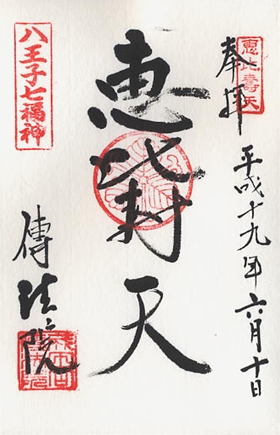 奉拝
恵比寿天
平成十九年六月十日
恵比寿天
八王子七福神
傳法院